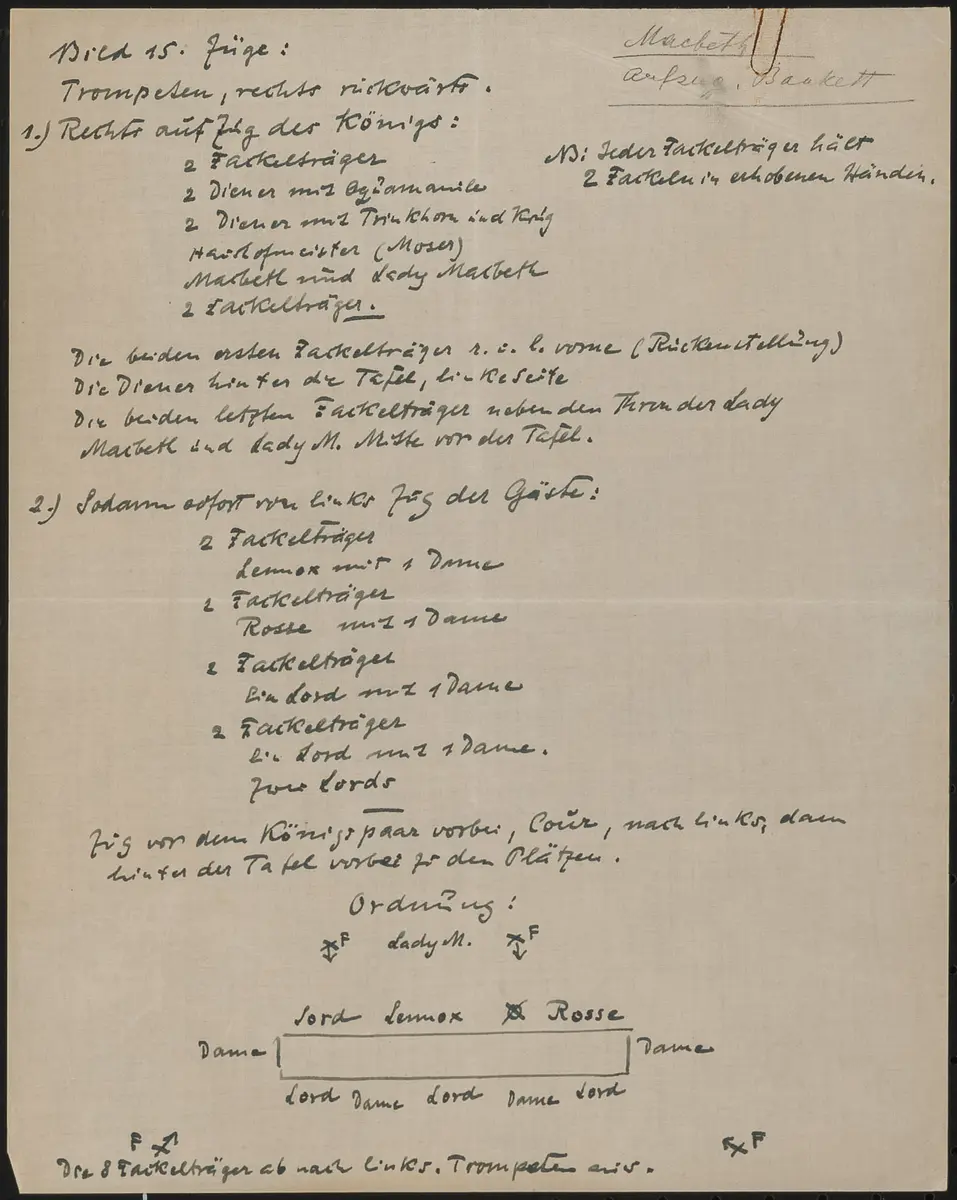 Bild 15. Züge:
Macbeth
Aufzug. Bankett
Trompeten, rechts rückwärts.
1.) Rechts aufzug des Königs:
2 Fackelträger
NB: Jeder Fackelträger hält
2 Fackeln in erhobenen Händen.
2 Diener mit
2 Diener mit Trinkhorn und Krug
Haushofmeister (Moser)
Macbeth und Lady Macbeth
2 Fackelträger.
Die beiden ersten Fackelträger r. u. l. vorne (Rückenstellung)
Die Diener hinter die Tafel, linke Seite
Die beiden letzten Fackelträger neben den Thron der Lady
Macbeth und Lady M. Mitte vor der Tafel.
2.) Sodann sofort von links Zug der Gäste:
2 Fackelträger
Lennox mit 1 Dame
2 Fackelträger
Rosse mit 1 Dame
2 Fackelträger
Ein Lord mit 1 Dame
2 Fackelträger
Ein Lord mit 1 Dame.
Zwei Lords
Zug vor dem Königspaar vorbei, Cour, nach links, dann
hinter der Tafel vorbei zu den Plätzen.
Ordnung:
F Lady M. F
Lord Lennox Rosse
Dame Dame
Lord Dame Lord Dame Lord
F F
Die 8 Fackelträger ab nach links. Trompeten aus.